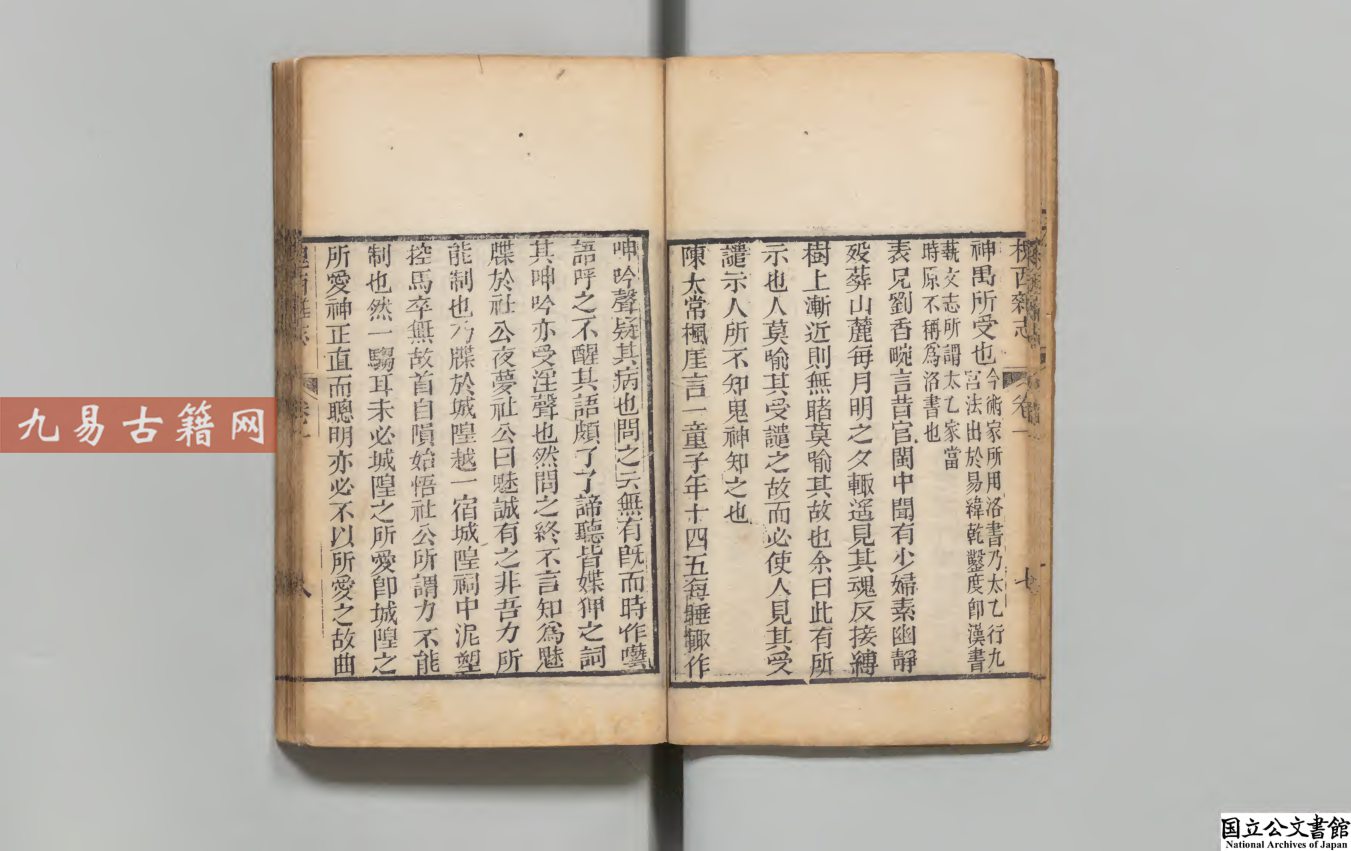 槐西雜志
卷一
七
神禹所受也今術家所用洛書乃太乙行九
宮法出於易緯乾鑿度卽漢書
藝文志所謂太乙家當
時原不稱爲洛書也
表兄劉香畹言昔官閩中聞有少婦素幽靜
歿葬山麓每月明之夕輒遥見其魂反接縛
樹上漸近則無睹莫喻其故也余曰此有所
示也人莫喻其受譴之故而必使人見其受
譴示人所不知鬼神知之也
陳太常楓厓言一童子年十四五每睡輒作
呻吟聲疑其病也問之云無有旣而時作囈
語呼之不醒其語頗了了諦聽皆媟狎之詞
其呻吟亦受淫聲也然問之終不言知爲魅
牒於社公夜夢社公曰魅誠有之非吾力所
能制也乃牒於城隍越一宿城隍祠中泥塑
控馬卒無故首自隕始悟社公所謂力不能
制也然一騶耳未必城隍之所愛卽城隍之
所愛神正直而聰明亦必不以所愛之故曲
九易古籍网
国立公文書館
National Archives of Japan